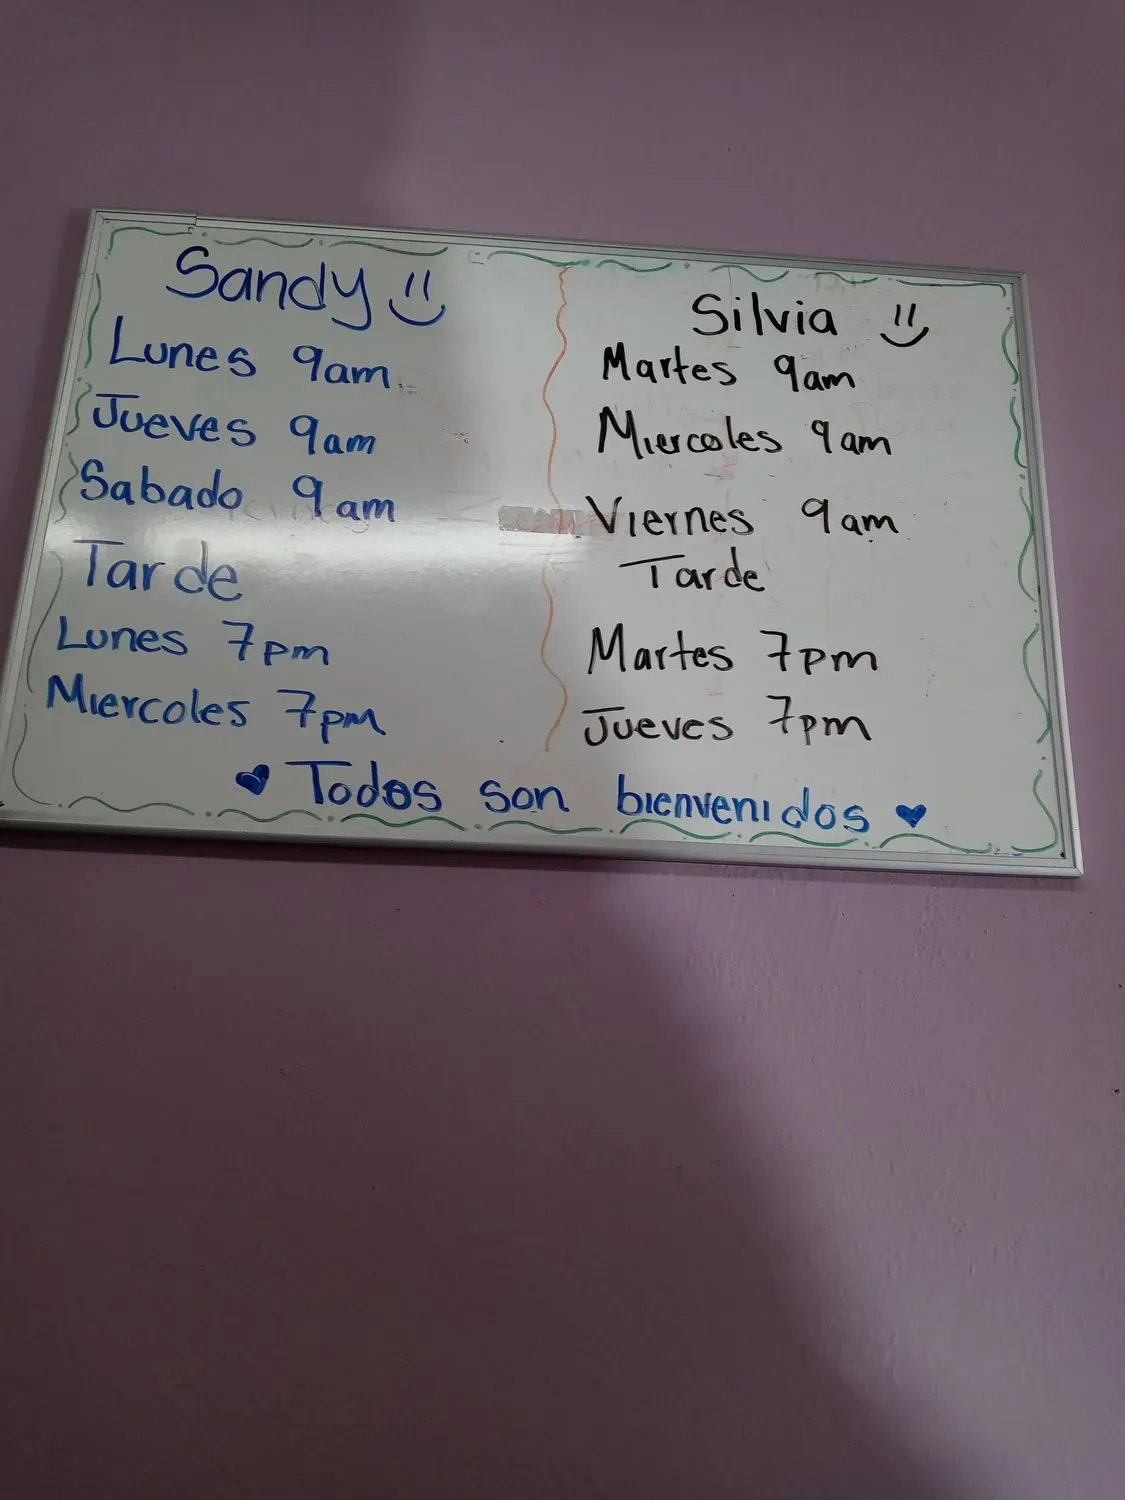 Sandy
Lunes 9am
Jueves 9am
Sabado 9am
Tarde
Lunes 7pm
Miercoles 7pm
Silvia
Martes 9am
Miercoles 9am
Viernes 9am
Tarde
Martes 7pm
Jueves 7pm
Todos son bienvenidos